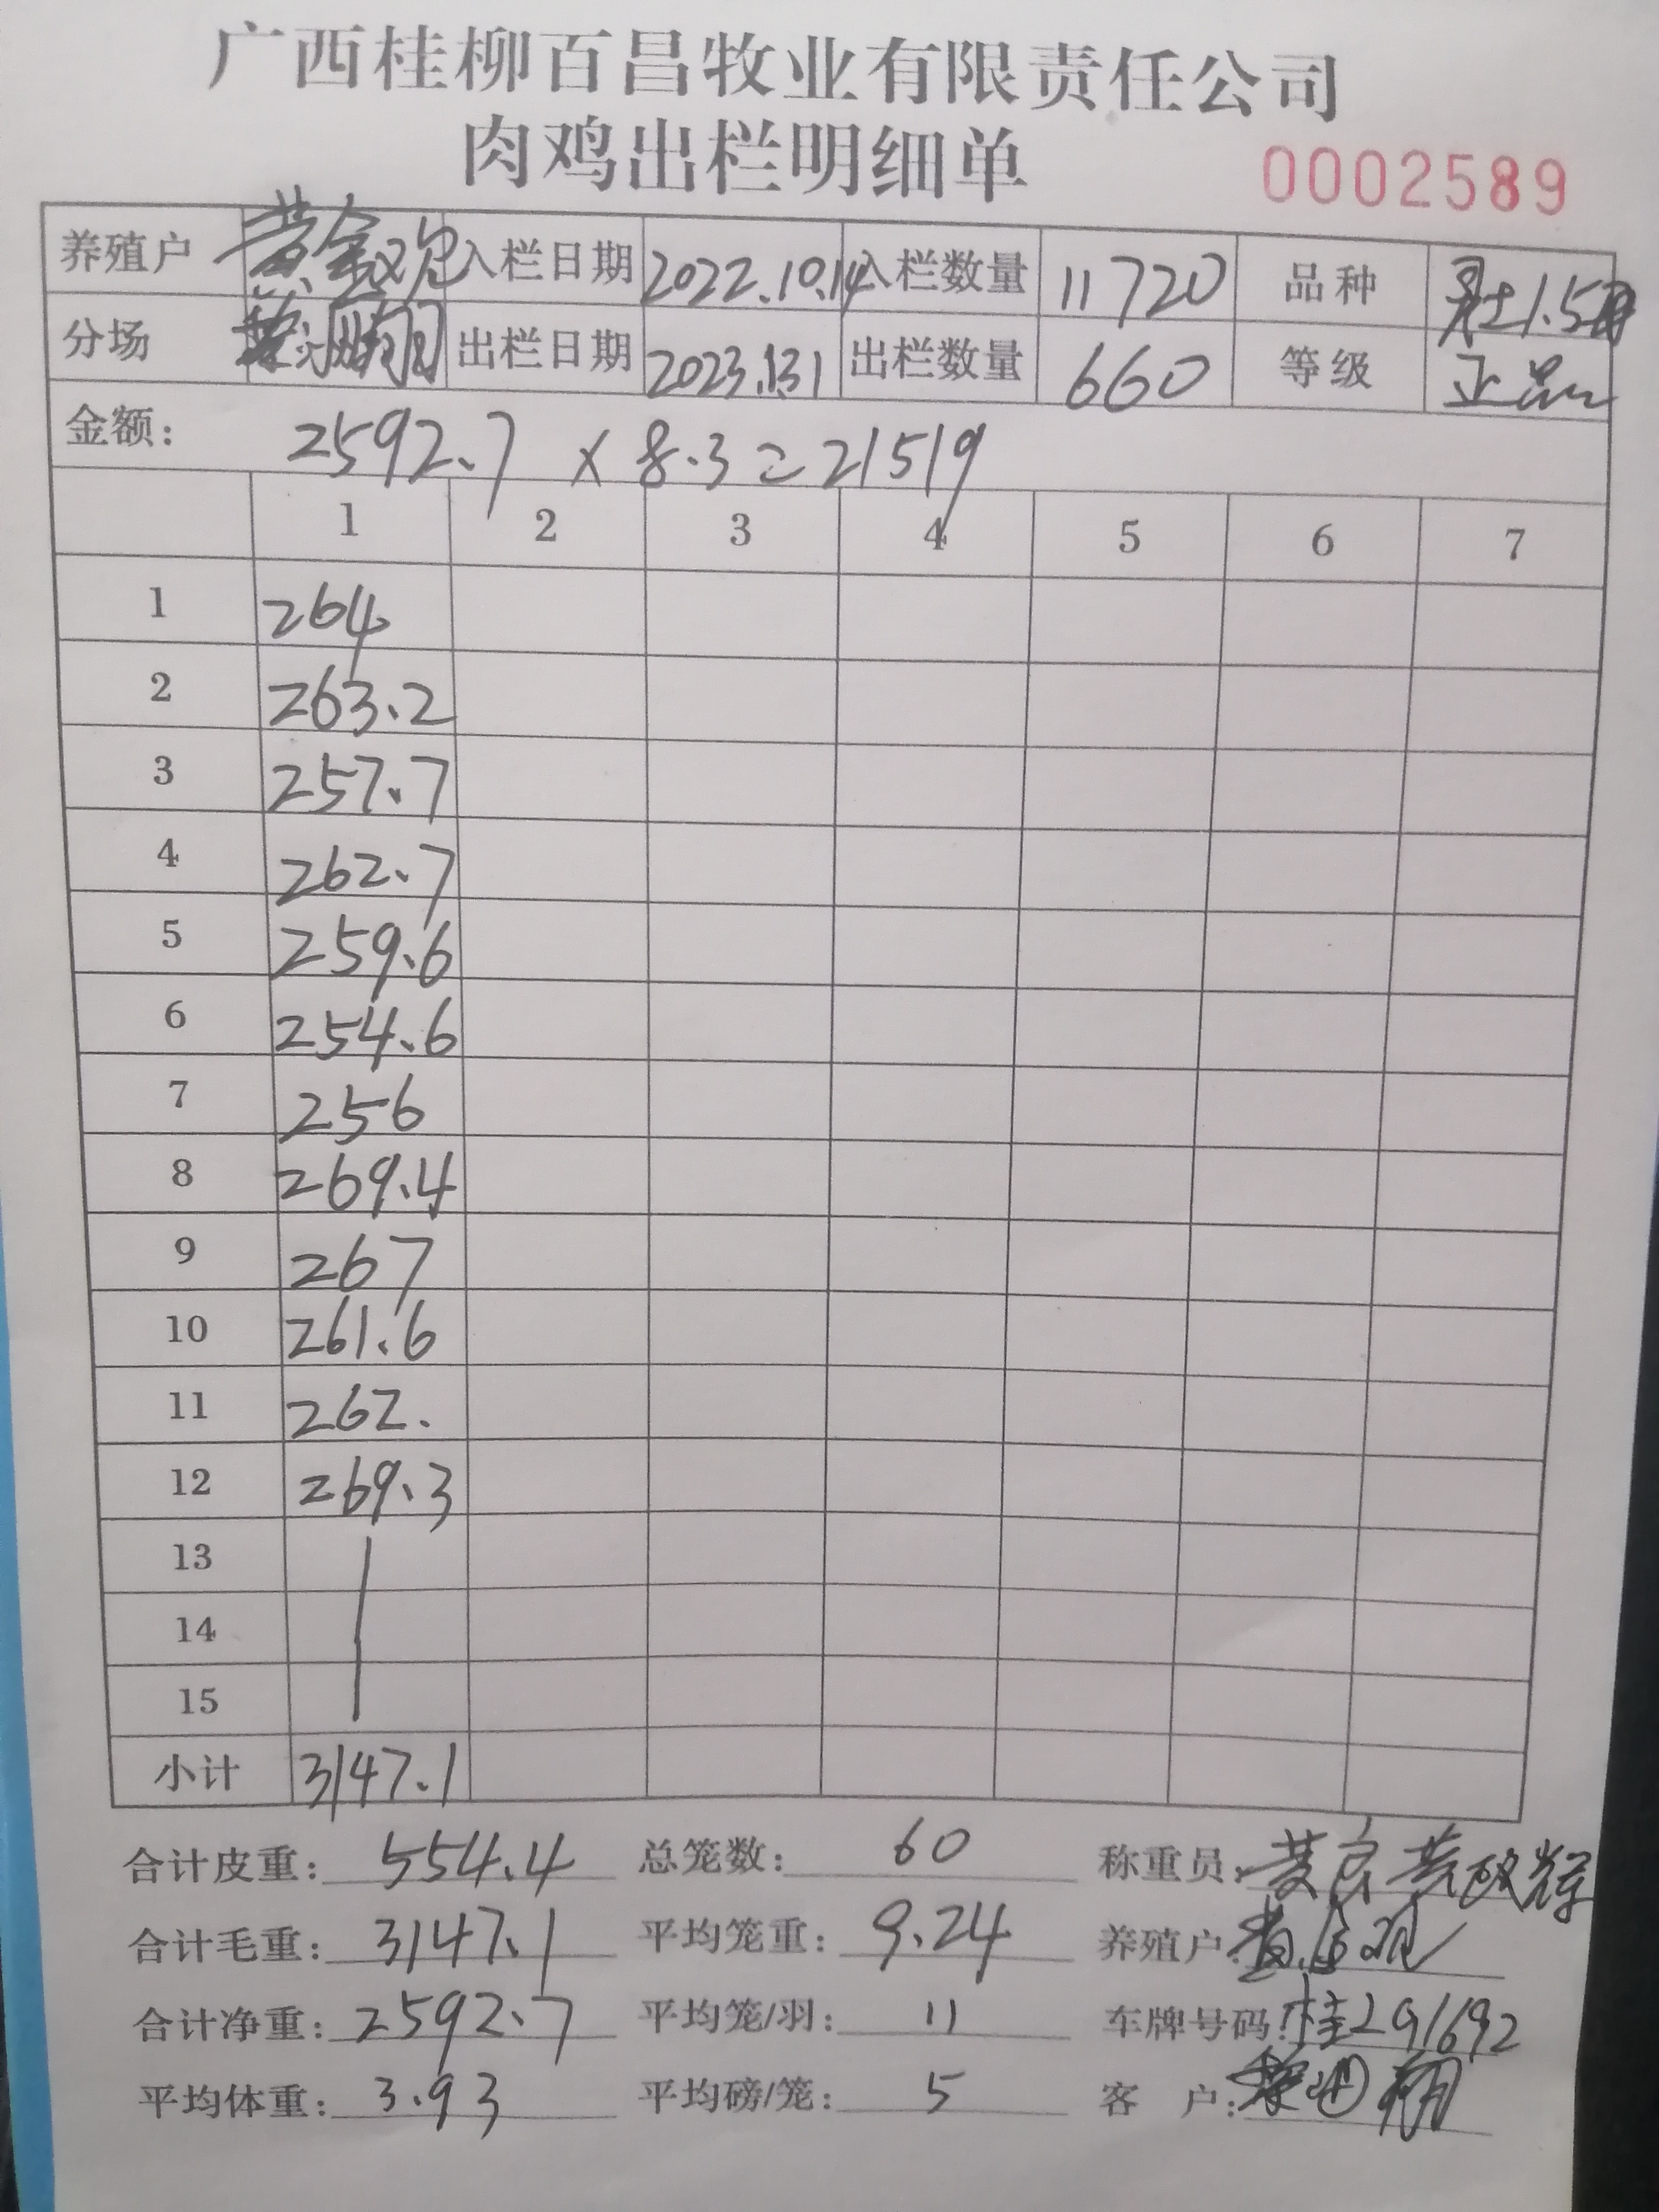 广西桂柳百昌牧业有限责任公司
肉鸡出栏明细单 0002589
养殖户 黄金观 入栏日期 2022.10.14 入栏数量 11720 品种
分场 出栏日期 2023.1.31 出栏数量 660 等级 正品
金额: 2592.7 × 8.3 = 21519
1 2 3 4 5 6 7
1 264
2 263.2
3 257.7
4 262.7
5 259.6
6 254.6
7 256
8 269.4
9 267
10 261.6
11 262.
12 269.3
13
14
15
小计 3147.1
合计皮重: 554.4 总笼数: 60 称重员:
合计毛重: 3147.1 平均笼重: 9.24 养殖户:
合计净重: 2592.7 平均笼/羽: 11 车牌号码:
平均体重: 3.93 平均磅/笼: 5 客户: